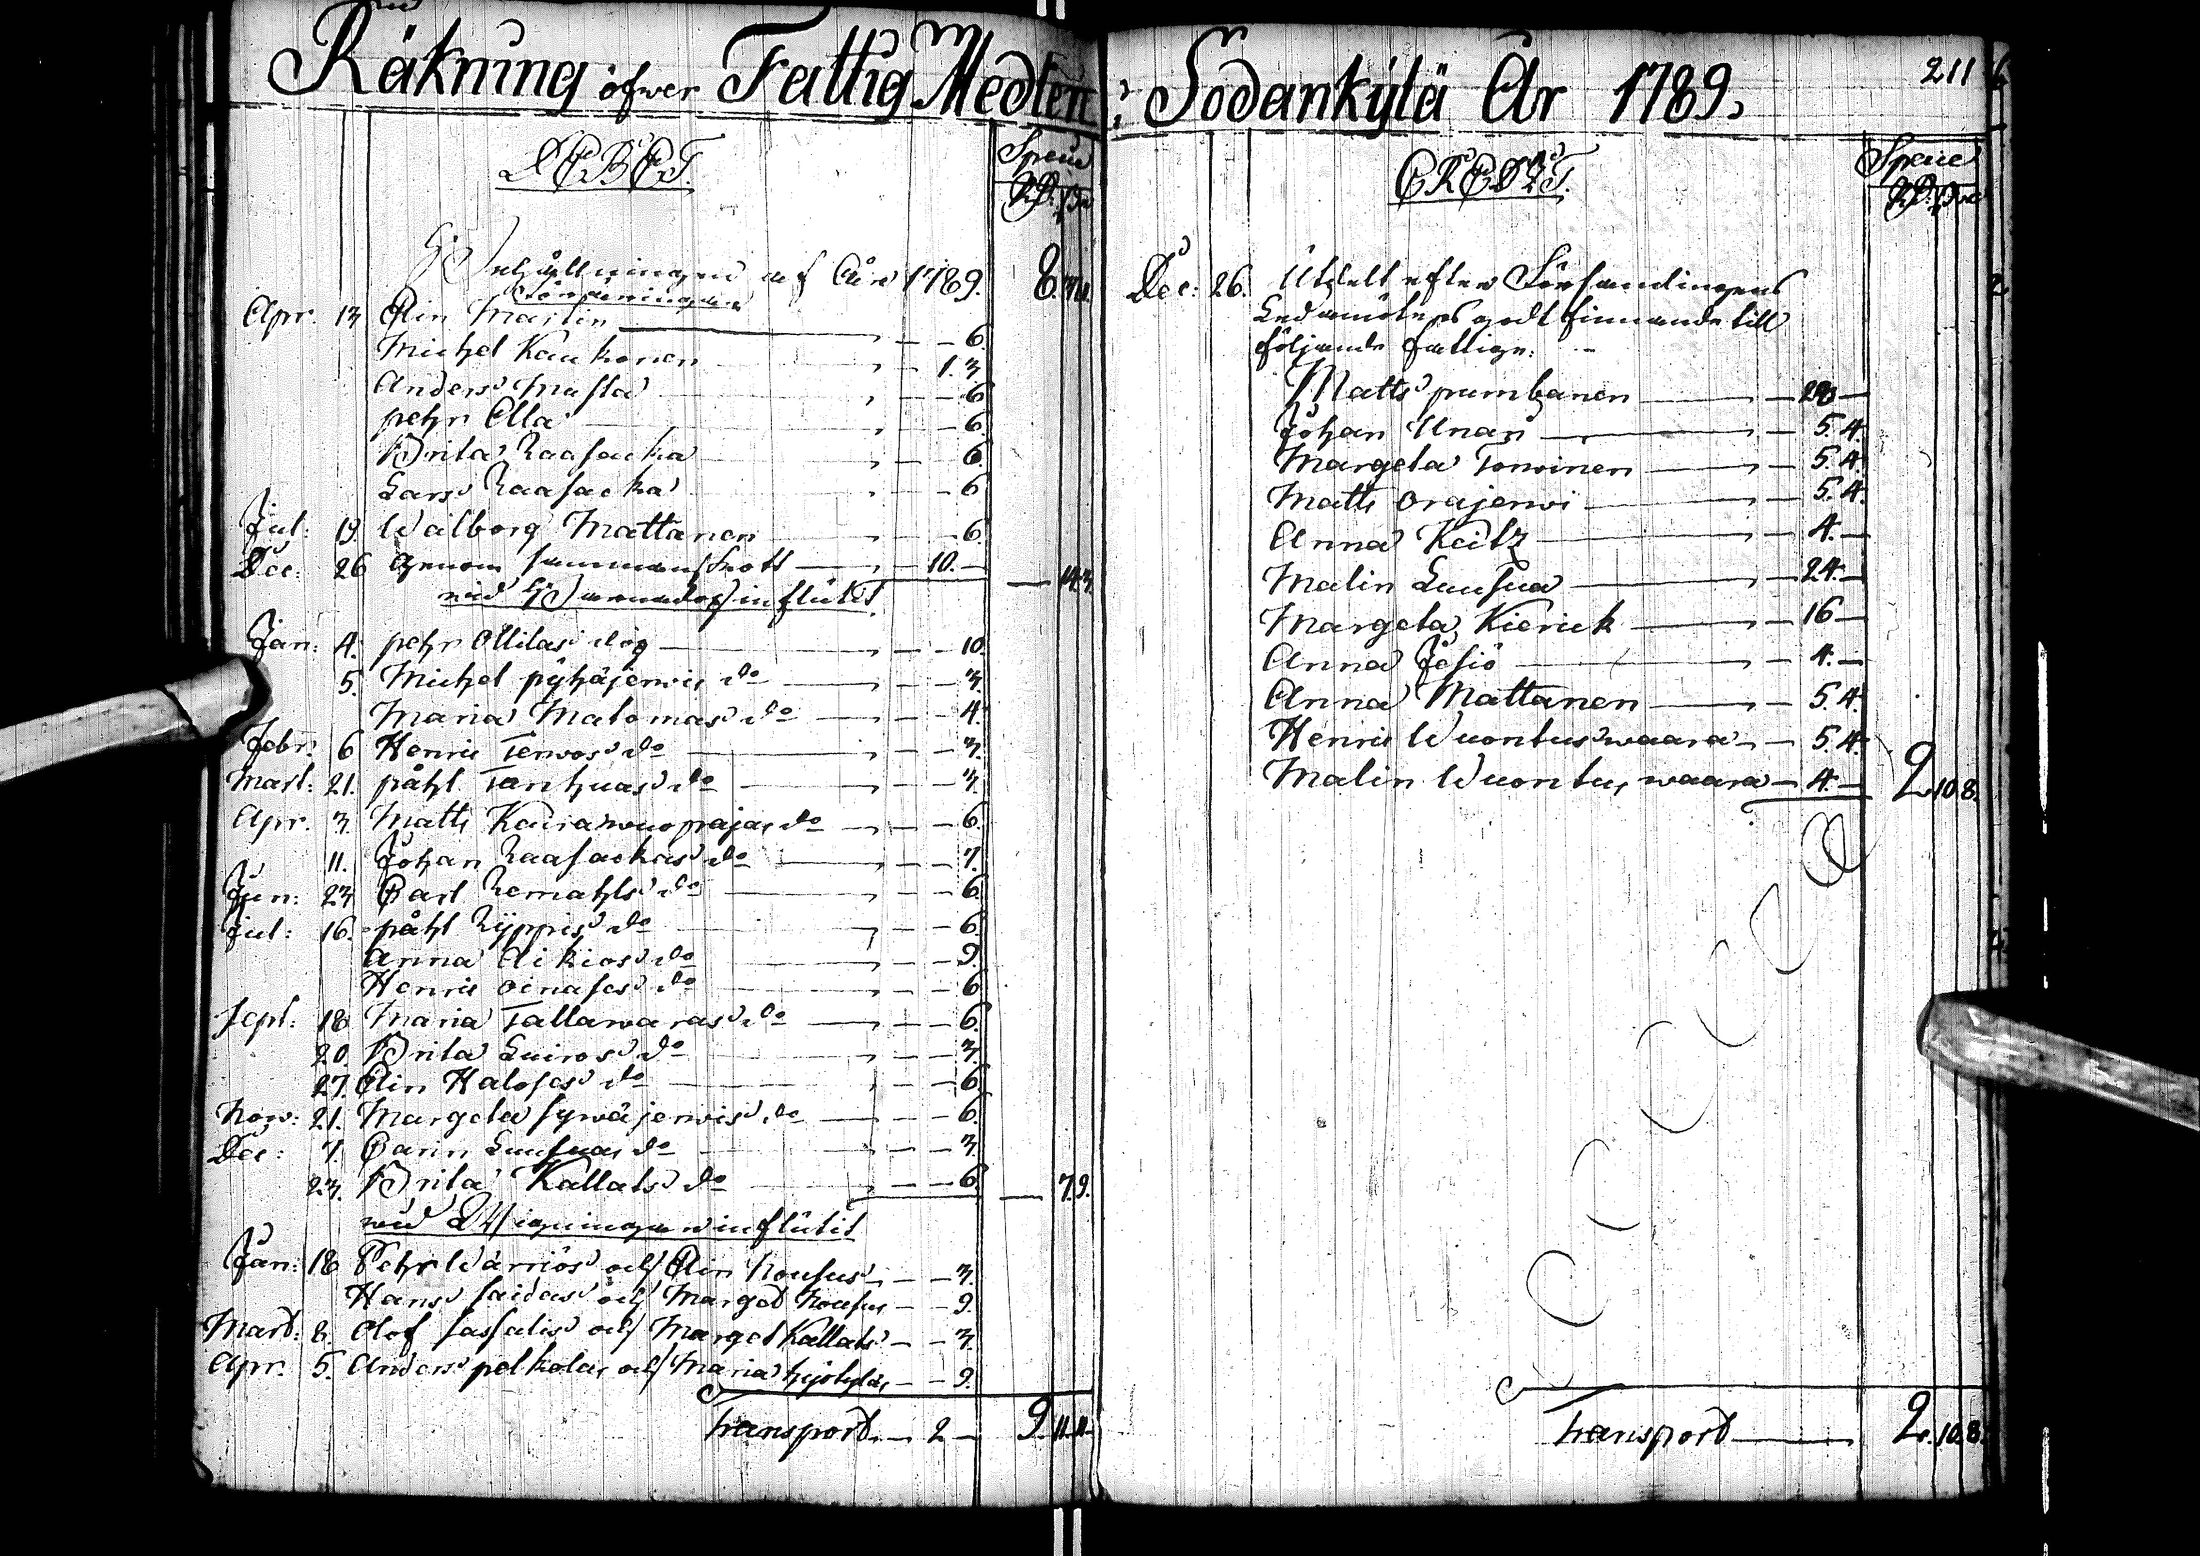 Räkning öfwer Fattig Medlen i Sodankylä År 1789.
211
DEBET.
Specie
RD.
Behållningen af Året 1789. 8.
Apr. 13 Elin Martin — 6.
Michel Kaukonen — 1. 3
Anders Musta — 6
pehr Alla — 6.
Brita Raasacka — 6.
Lars Raasacka — 6
Jul: 19. Walborg Mattanen — 6.
Dec: 26 Genom sammanskott — 10. — 14.3.
wid influtit
Jan: 4. pehr Ollilas dög — 10.
5. Michel pyhäjerwis do — 3.
Maria Matomas do — 4.
Febr: 6 Henric Terwos do — 3.
Mart: 21. påhl Tanhuas do — 3.
Apr. 3. Matts do — 6.
11. Johan Raasackas do — 7.
Jun: 23 Carl Remahls do — 6.
Jul: 16. påhl Ryppis do — 6.
Anna Aikios do — 9.
Henric oinases do — 6
Sept: 18 Maria Tallawaras do — 6.
20. Brita Luiros do — 3.
27. Elin Haloses do — 6.
Now: 21. Margeta sywäjerwis do — 6.
Dec: 7. Carin Luusuas do — 3.
23. Brita Kallats do — 6. — 7.9.
wid Wigningar influtit
Jan: 18 Pehr Wärriös och Elin Nousus — 3.
Hans saidas och Marget Nousus — 9.
Mart: 8. Olof sassalis och Marget Kallats — 3.
Apr. 5. Anders pelkolas och Maria — 9.
Transport. — 2 — 9. 11.11.
CREDIT.
Specie
RD.
Dec: 26. Utdelt efter Församlingens
Ledamöters godt finnande till
följande fattige:
Matts pumbanen — 28 —
Johan Unari — 5. 4.
Margeta Torvinen — 5. 4.
Matts orajerwi — 5. 4.
Anna Keitz — 4. —
Malin Luusua — 24. —
Margeta Kieriek — 16 —
Anna Jesiö — 4. —
Anna Mattanen — 5. 4.
Henric Wuontuswaara — 5. 4.
Malin Wuontuswaara — 4. — 2. 10.8.
Transport — 2. 10.8.